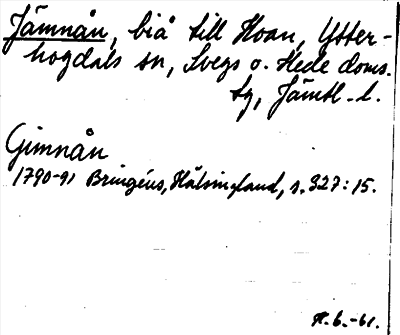 Jämnån, biå till Hoan, Ytter-
hogdals sn, Svegs o. Hede doms.
tg, Jämtl. l.
Gimnån
1790-91 Bringéus, Hälsingland, s. 327:15.
H. b. -61.